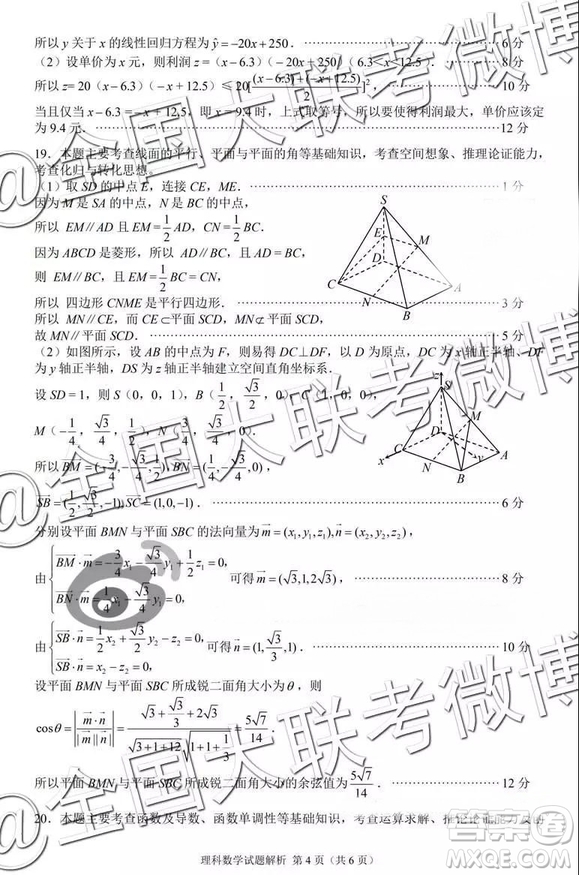 所以 y 关于 x 的线性回归方程为 ŷ = −20x + 250 . ………… 6 分
（2）设单价为 x 元，则利润 z = (x − 6.3)(−20x + 250) (6.3 < x < 12.5) . ………… 8 分
所以 z = 20（x − 6.3）（− x + 12.5）≤ 20[((x − 6.3) + (−x + 12.5))/2]² , ………… 10 分
当且仅当 x − 6.3 = − x + 12.5，即 x = 9.4 时，上式取等号，所以要使得利润最大，单价应该定
为 9.4 元. ………… 12 分
19．本题主要考查线面的平行、平面与平面的角等基础知识，考查空间想象、推理论证能力，
考查化归与转化思想。
（1）取 SD 的中点 E，连接 CE，ME. ………… 1 分
因为 M 是 SA 的中点，N 是 BC 的中点，
所以 EM // AD 且 EM = 1/2 AD，CN = 1/2 BC.
因为 ABCD 是菱形，所以 AD // BC，且 AD = BC，
则 EM // BC，且 EM = 1/2 BC = CN，
所以 四边形 CNME 是平行四边形. ………… 3 分
所以 MN // CE，而 CE ⊂ 平面 SCD，MN ⊄ 平面 SCD，
故 MN // 平面 SCD. ………… 5 分
S
E
M
D
C
N
B
A
（2）如图所示，设 AB 的中点为 F，则易得 DC⊥DF，以 D 为原点，DC 为 x 轴正半轴、DF
为 y 轴正半轴，DS 为 z 轴正半轴建立空间直角坐标系.
设 SD = 1，则 S（0，0，1），B（1/2，√3/2，0），C（1，0，0），
M（−1/4，√3/4，1/2），N（3/4，√3/4，0）
所以 BM = (−3/4, −√3/4, 1/2), BN = (1/4, −√3/4, 0)，
SB = (1/2, √3/2, −1), SC = (1, 0, −1) . ………… 6 分
z
S
M
D
C
A
x
N
B
y
分别设平面 BMN 与平面 SBC 的法向量为 m = (x₁, y₁, z₁), n = (x₂, y₂, z₂)，
由 { BM · m = −3/4 x₁ − √3/4 y₁ + 1/2 z₁ = 0,
BN · m = 1/4 x₁ − √3/4 y₁ = 0, 可得 m = (√3, 1, 2√3)， ………… 8 分
由 { SB · n = 1/2 x₂ + √3/2 y₂ − z₂ = 0,
SC · n = x₂ − z₂ = 0, 可得 n = (1, √3/3, 1) . ………… 10 分
设平面 BMN 与平面 SBC 所成锐二面角大小为 θ，则
cosθ = |m · n / |m||n|| = (√3 + √3/3 + 2√3) / (√(3+1+12) √(1+1+1/3)) = 5√7/14 .
所以平面 BMN 与平面 SBC 所成锐二面角大小的余弦值为 5√7/14 . ………… 12 分
20．本题主要考查函数及导数、函数单调性等基础知识，考查运算求解、推论论证能力及创
理科数学试题解析 第 4 页（共 6 页）
@全国大联考微博
@全国大联考微博
@全国大联考微博